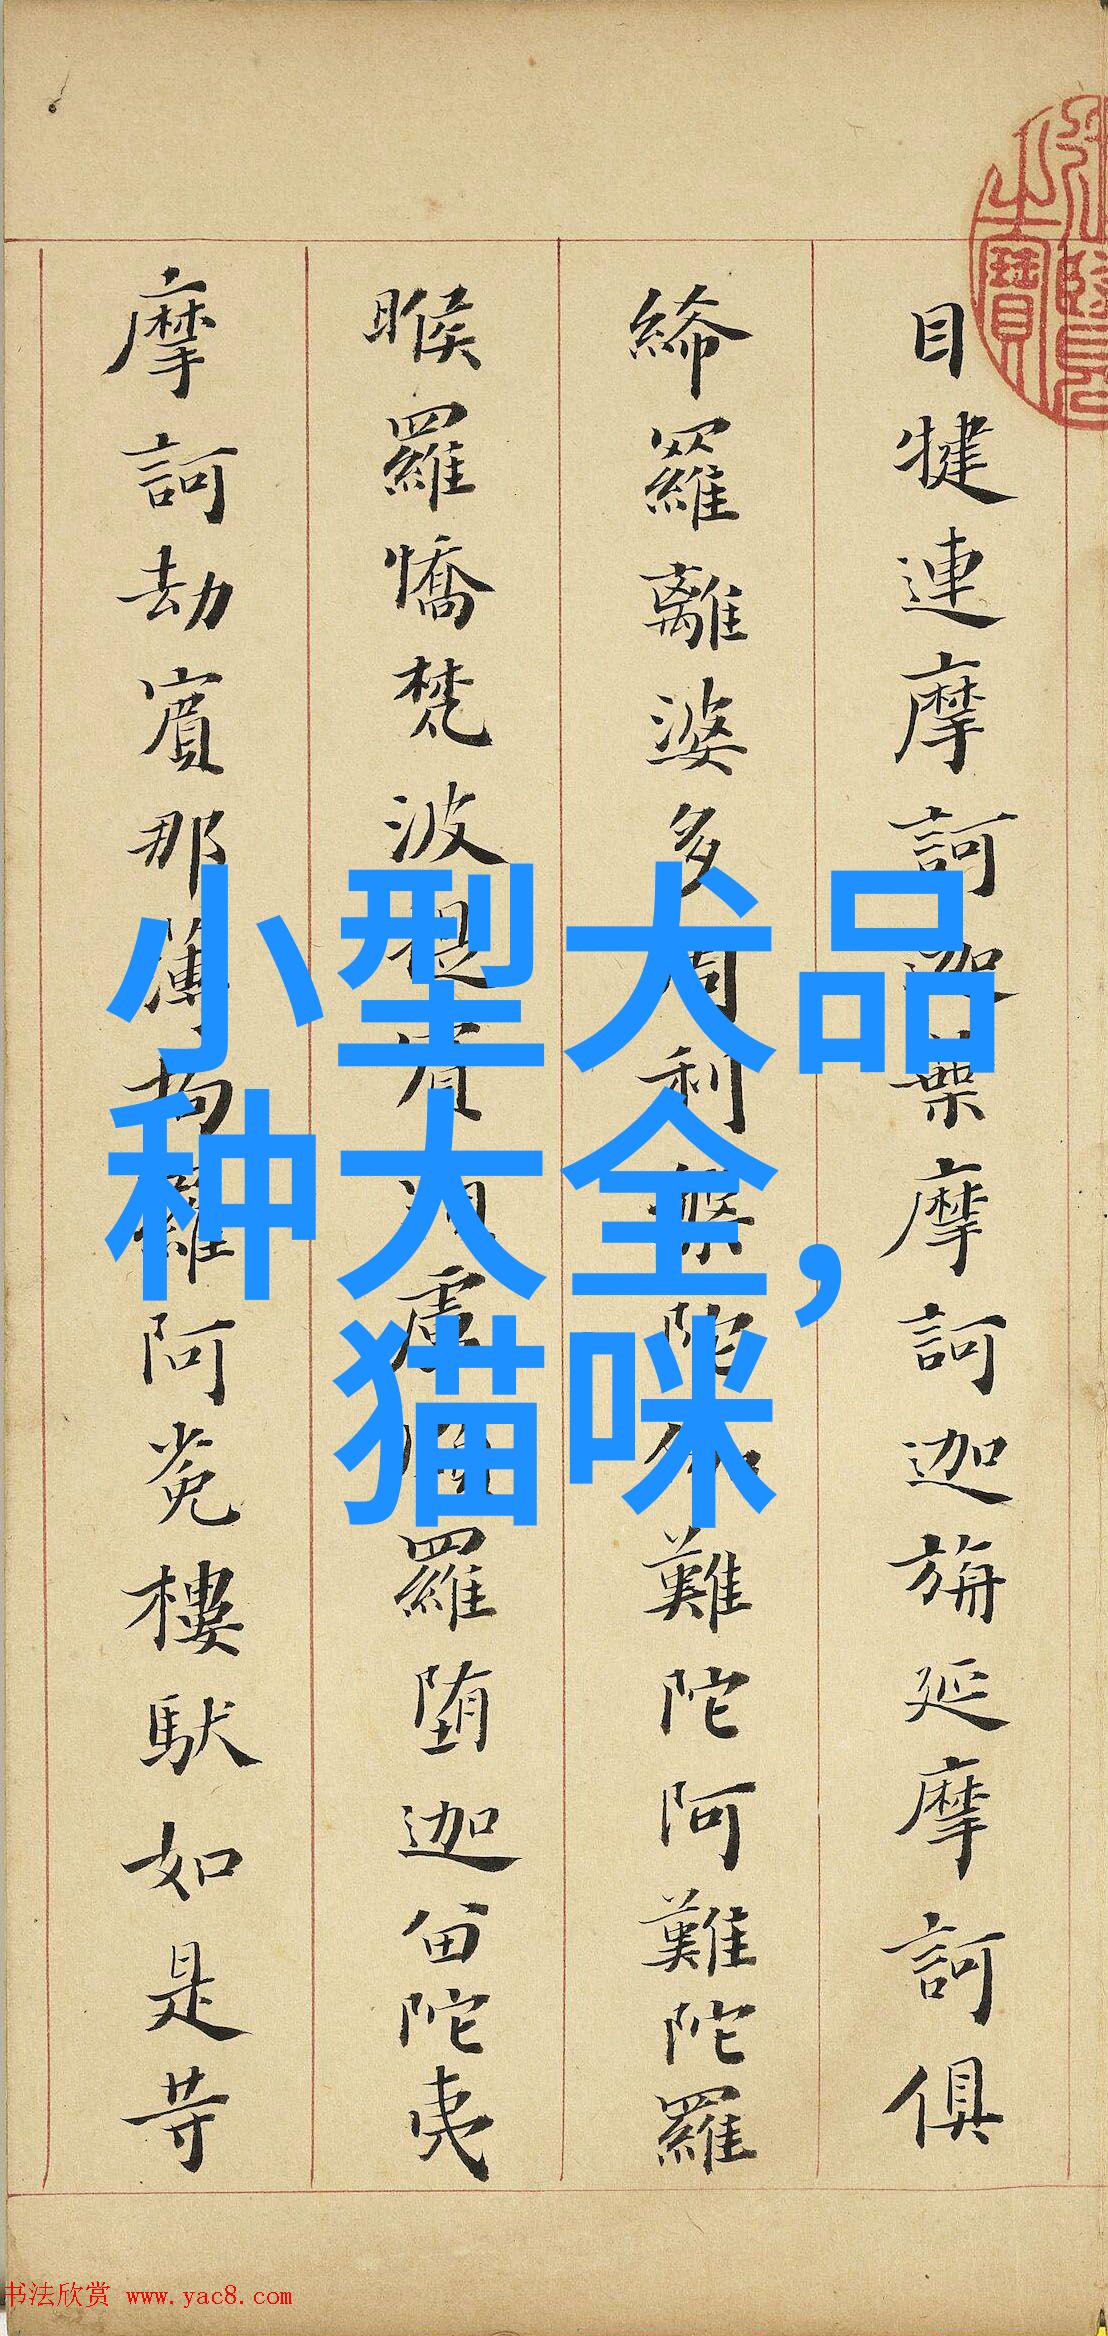 目犍連摩訶迦葉摩訶迦旃延摩訶俱
絺羅離婆多周利槃陀伽難陀阿難陀羅
睺羅憍梵波提賓頭盧頗羅堕迦留陀夷
摩訶劫賓那薄拘羅阿㝹樓馱如是等
小型犬品
种大全,
猫咪
书法欣赏 www.yac8.com